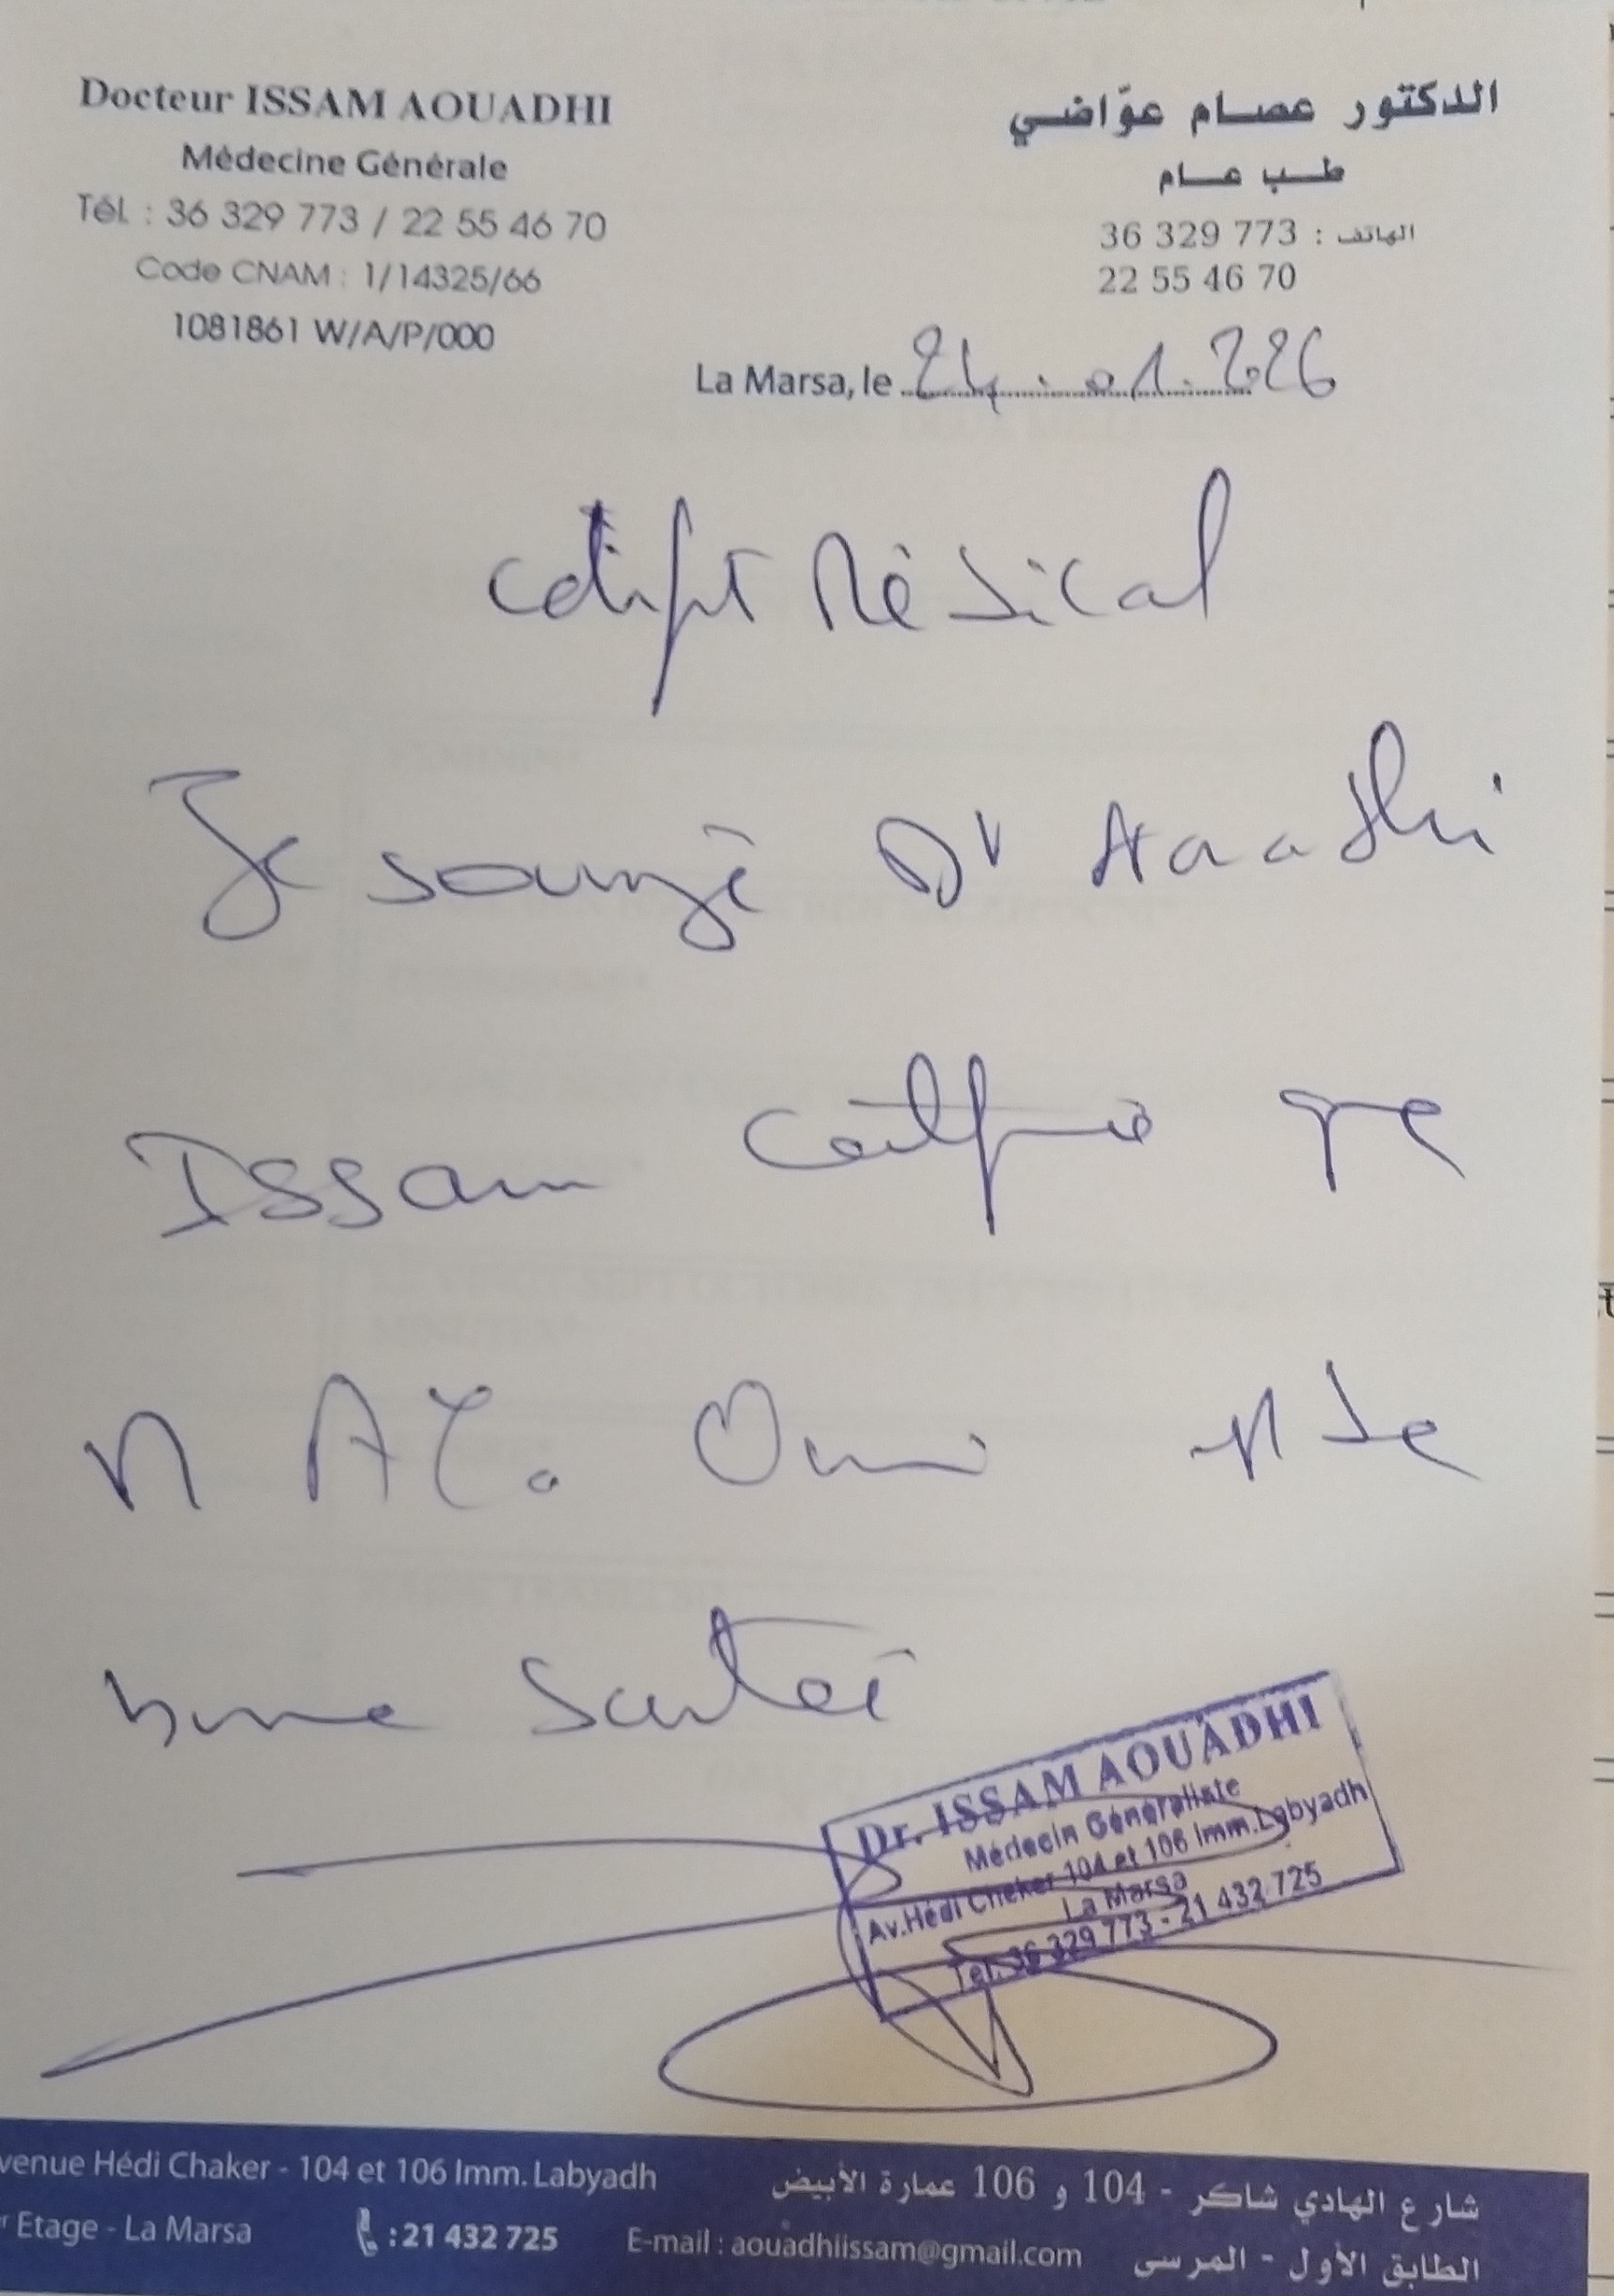 Docteur ISSAM AOUADHI
Médecine Générale
Tél. : 36 329 773 / 22 55 46 70
Code CNAM : 1/14325/66
1081861 W/A/P/000
الدكتور عصام عوّاضي
طب عام
الهاتف : 36 329 773
22 55 46 70
La Marsa, le 24.01.2026
Médical
Je soussigné Dr Aouadhi
Issam certifie que
est de
bonne santé
Dr. ISSAM AOUADHI
Médecin Généraliste
Av.Hédi Cheker 104 et 106 Imm.Labyadh
La Marsa
Tel. 36 329 773 - 21 432 725
venue Hédi Chaker - 104 et 106 Imm. Labyadh
r Etage - La Marsa
: 21 432 725
E-mail : aouadhiissam@gmail.com
شارع الهادي شاكر - 104 و 106 عمارة الأبيض
الطابق الأول - المرسى